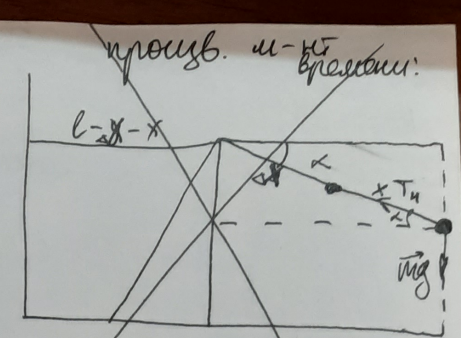 произв. м-нт
времени:
l - x - x
α
x Tн
mg